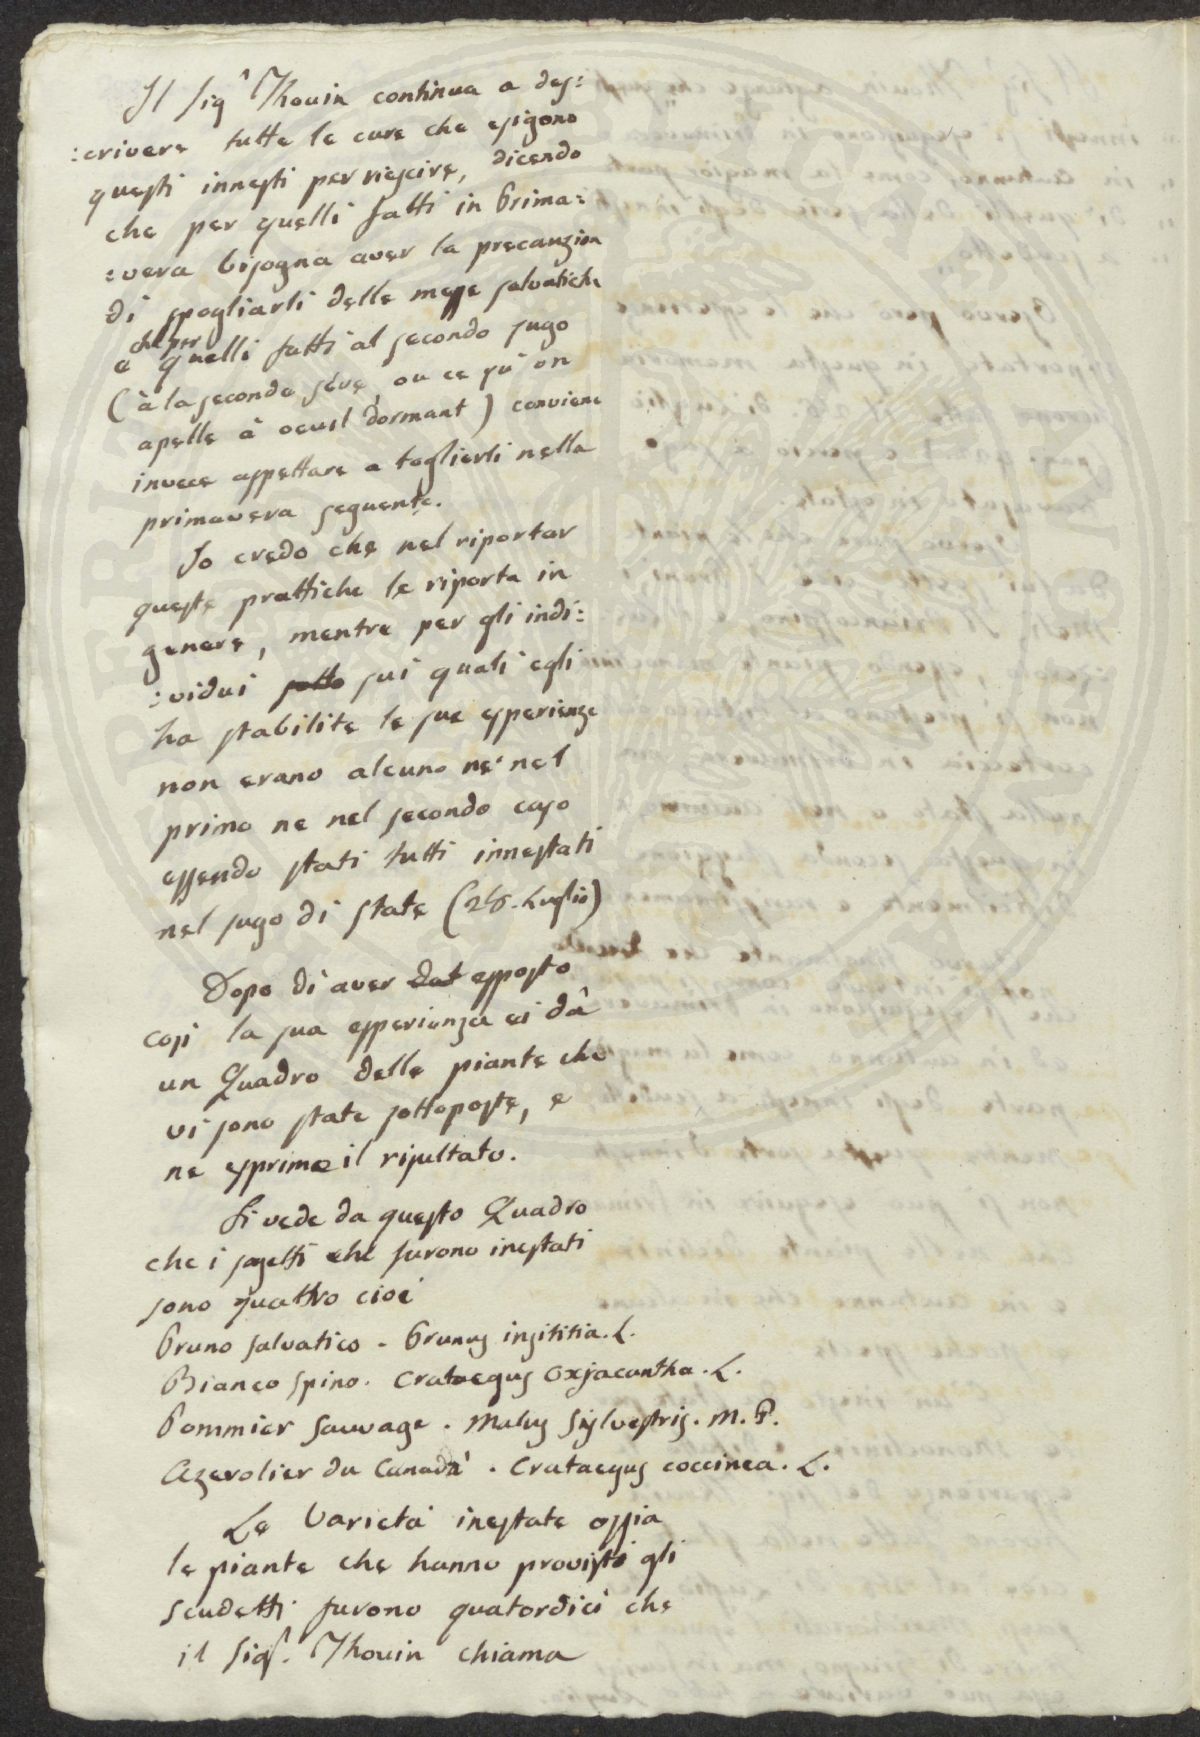 Il Sig.r Thouin continua a des:
:crivere tutte le cure che esigono
questi innesti per riescire, dicendo
che per quelli fatti in Prima:
:vera bisogna aver la precauzion
di spogliarli delle messe salvatiche
che per
e quelli fatti al secondo sugo
(à la seconde séve, ou ce qu'on
apelle à oeuil dormant) conviene
invece aspettare a toglierli nella
primavera seguente.
Io credo che nel riportar
queste prattiche le riporta in
genere, mentre per gli indi:
:vidui sotto sui quali egli
ha stabilite le sue esperienze
non erano alcuno ne' nel
primo ne nel secondo caso
essendo stati tutti innestati
nel sugo di state (26. Luglio)
Dopo di aver dat esposto
così la sua esperienza ei dà
un Quadro delle piante che
vi sono state sottoposte, e
ne esprime il risultato.
Si vede da questo Quadro
che i sogetti che furono inestati
sono quattro cioè
Pruno salvatico - Prunus insititia. L.
Bianco spino. Crataegus Oxjacantha. L.
Pommier Sauvage. Malus Sylvestris. M. P.
Azerolier du Canadà. Crataegus coccinea. L.
Le Varietà inestate ossia
le piante che hanno provisti gli
scudetti furono quatordici che
il Sig.r Thouin chiama